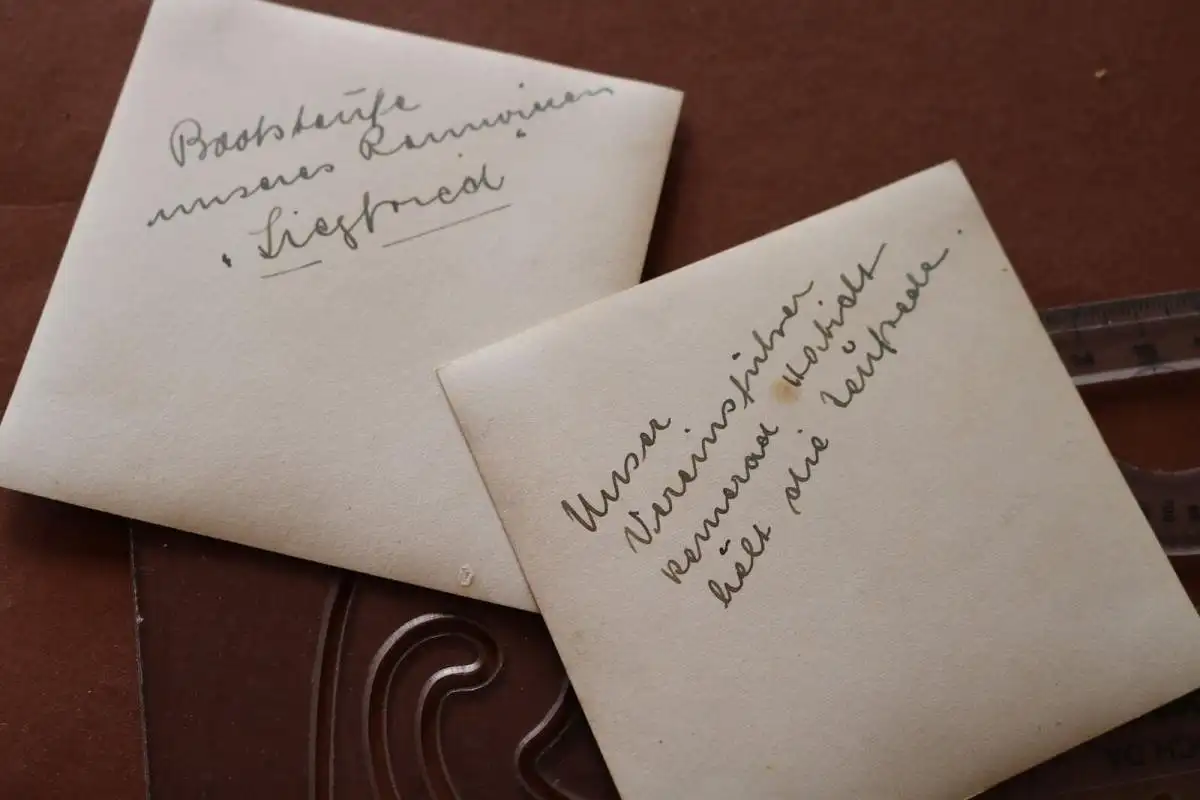 Bootstaufe
unseres Rennvierers
"Siegfried"
Unser
Vereinsführer
kamerad
hält die Taufrede.